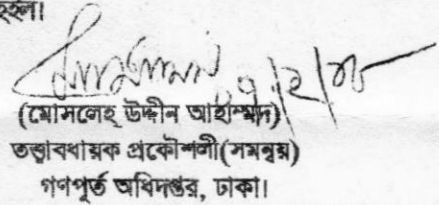 হইল।
(মোসলেহ্ উদ্দীন আহাম্মদ)
তত্ত্বাবধায়ক প্রকৌশলী(সমন্বয়)
গণপূর্ত অধিদপ্তর, ঢাকা।